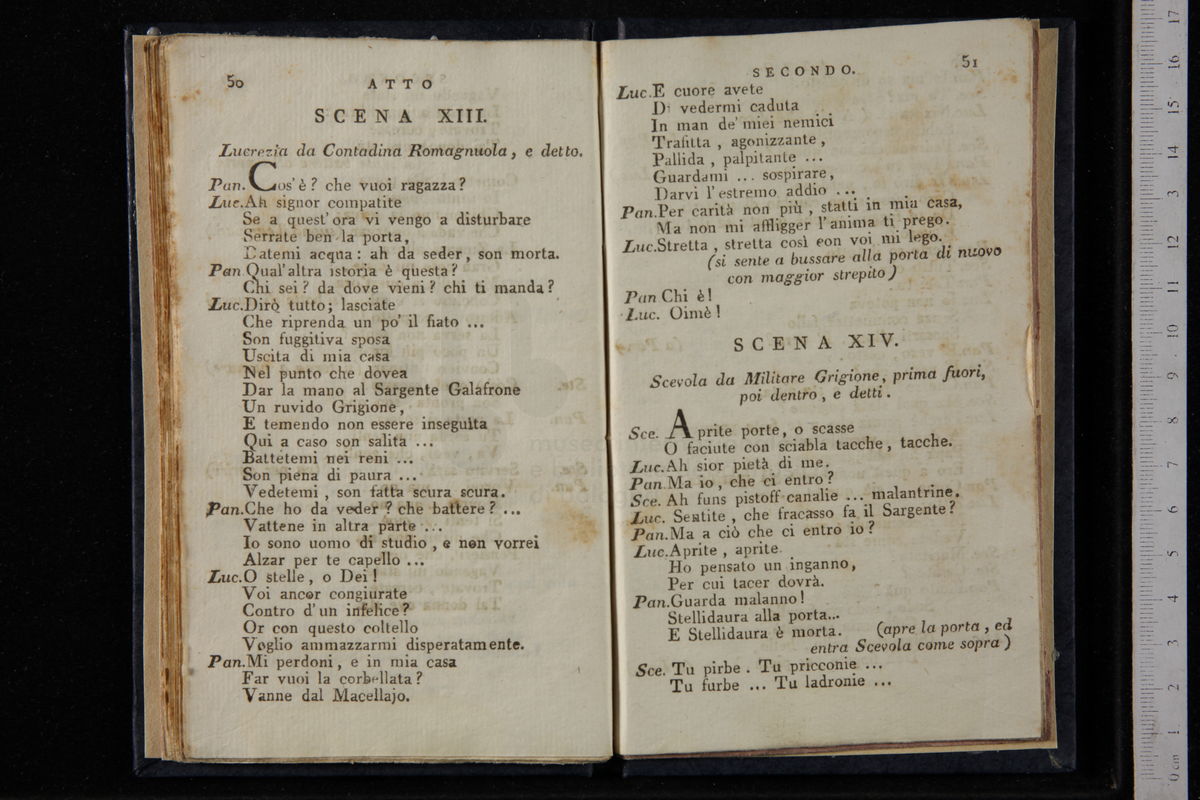 50
ATTO
SCENA XIII.
Lucrezia da Contadina Romagnuola, e detto.
Pan. Cos'è? che vuoi ragazza?
Luc. Ah signor compatite
Se a quest'ora vi vengo a disturbare
Serrate ben la porta,
Datemi acqua: ah da seder, son morta.
Pan. Qual'altra istoria è questa?
Chi sei? da dove vieni? chi ti manda?
Luc. Dirò tutto; lasciate
Che riprenda un po' il fiato ...
Son fuggitiva sposa
Uscita di mia casa
Nel punto che dovea
Dar la mano al Sargente Galafrone
Un ruvido Grigione,
E temendo non essere inseguita
Qui a caso son salita ...
Battetemi nei reni ...
Son piena di paura ...
Vedetemi, son fatta scura scura.
Pan. Che ho da veder? che battere? ...
Vattene in altra parte ...
Io sono uomo di studio, e non vorrei
Alzar per te capello ...
Luc. O stelle, o Dei!
Voi ancor congiurate
Contro d'un infelice?
Or con questo coltello
Voglio ammazzarmi disperatamente.
Pan. Mi perdoni, e in mia casa
Far vuoi la corbellata?
Vanne dal Macellajo.
SECONDO.
51
Luc. E cuore avete
Di vedermi caduta
In man de' miei nemici
Trafitta, agonizzante,
Pallida, palpitante ...
Guardami ... sospirare,
Darvi l'estremo addio ...
Pan. Per carità non più, statti in mia casa,
Ma non mi affligger l'anima ti prego.
Luc. Stretta, stretta così con voi mi lego.
(si sente a bussare alla porta di nuovo
con maggior strepito)
Pan Chi è!
Luc. Oimè!
SCENA XIV.
Scevola da Militare Grigione, prima fuori,
poi dentro, e detti.
Sce. Aprite porte, o scasse
O faciute con sciabla tacche, tacche.
Luc. Ah sior pietà di me.
Pan. Ma io, che ci entro?
Sce. Ah funs pistoff canalie ... malantrine.
Luc. Sentite, che fracasso fa il Sargente?
Pan. Ma a ciò che ci entro io?
Luc. Aprite, aprite.
Ho pensato un inganno,
Per cui tacer dovrà.
Pan. Guarda malanno!
Stellidaura alla porta...
E Stellidaura è morta. (apre la porta, ed
entra Scevola come sopra)
Sce. Tu pirbe. Tu pricconie ...
Tu furbe ... Tu ladronie ...